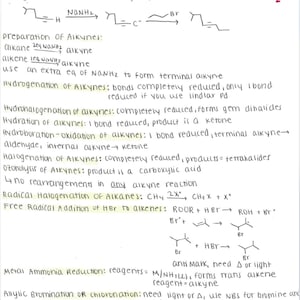 H NaNH₂ C⁻ Br
preparation of Alkynes:
alkane → alkyne
alkene → alkyne
use an extra eq of NaNH₂ to form terminal alkyne
Hydrogenation of Alkynes: bonds completely reduced, only 1 bond
reduced if you use lindlar Pd
Hydrohalogenation of alkynes: completely reduced, forms gem dihalides
Hydration of alkynes: 1 bond reduced, product is a ketone
Hydroboration-oxidation of alkynes: 1 bond reduced, terminal alkyne→
aldehyde, internal alkyne → ketone
Halogenation of Alkynes: completely reduced, products = tetrahalides
Ozonolysis of Alkynes: product is a carboxylic acid
↳ no rearrangements in any alkyne reaction
Radical Halogenation of Alkanes: CH₄ CH₃X + X•
Free Radical Addition of HBr to alkenes: ROOR + HBr → ROH + Br•
Br• + →
Br
+ HBr →
Br Br
anti mark, need Δ or light
Metal Ammonia Reduction: reagents = M/NH₃(L), forms trans alkene
reagent = alkyne
Allylic Bromination or Chlorination: need light or Δ, use NBS for bromine and